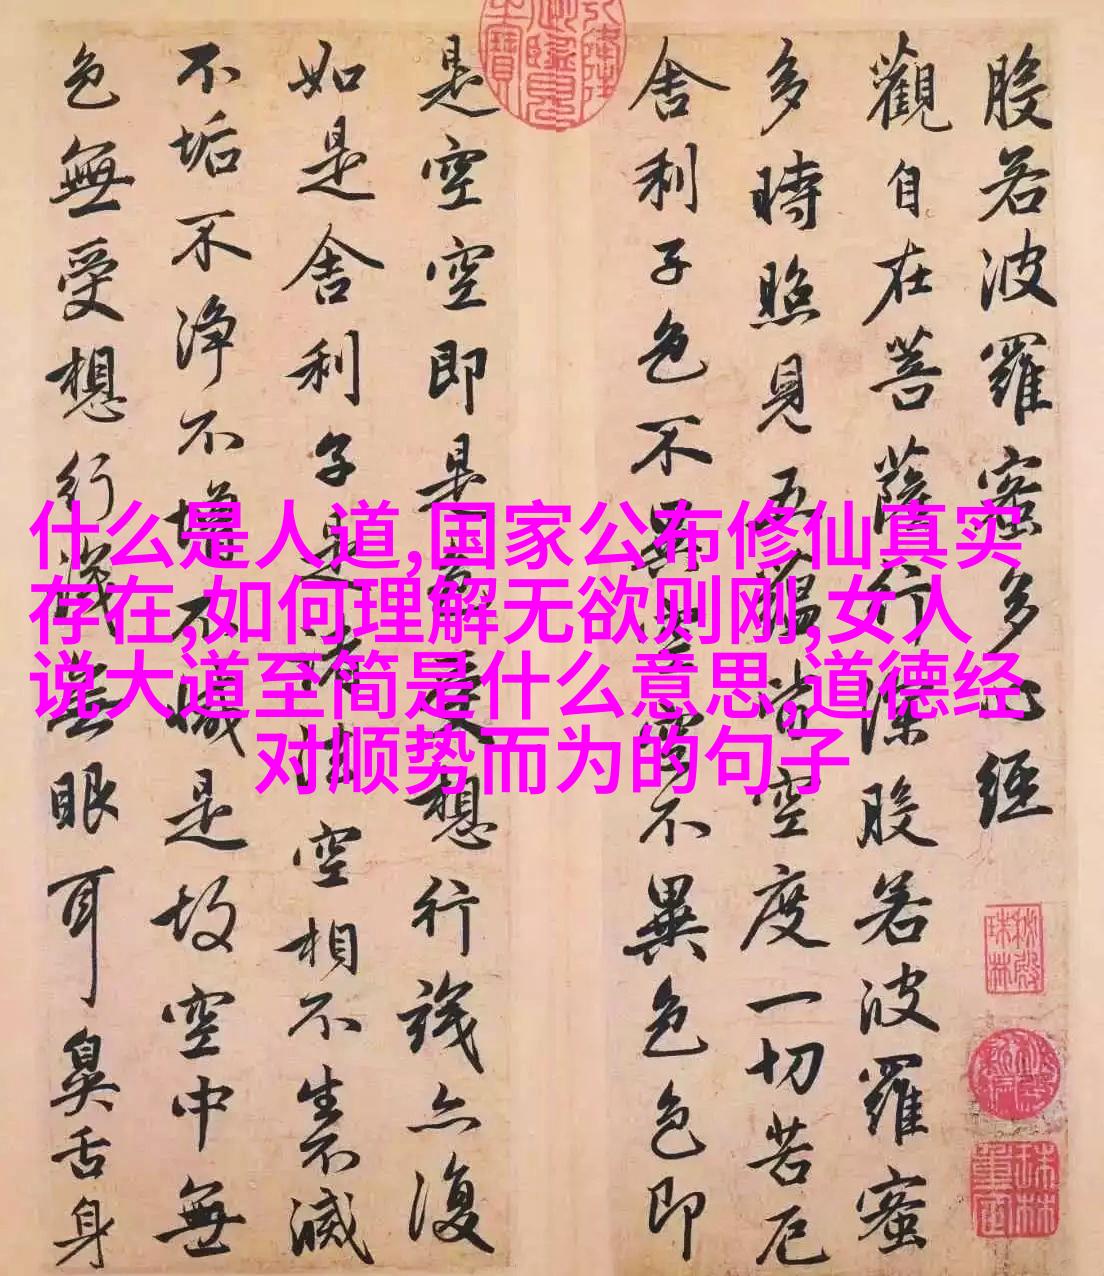 般若波羅蜜多心經
觀自在菩薩行深般若波羅蜜
多時照見五蘊皆空度一切苦厄
舍利子色不異空空不異色色即
是空空即是色受想行識亦復
如是舍利子是諸法空相不生不滅
不垢不淨不增不減是故空中無
色無受想行識無眼耳鼻舌身
什么是人道,国家公布修仙真实
存在,如何理解无欲则刚,女人
说大道至简是什么意思,道德经
对顺势而为的句子